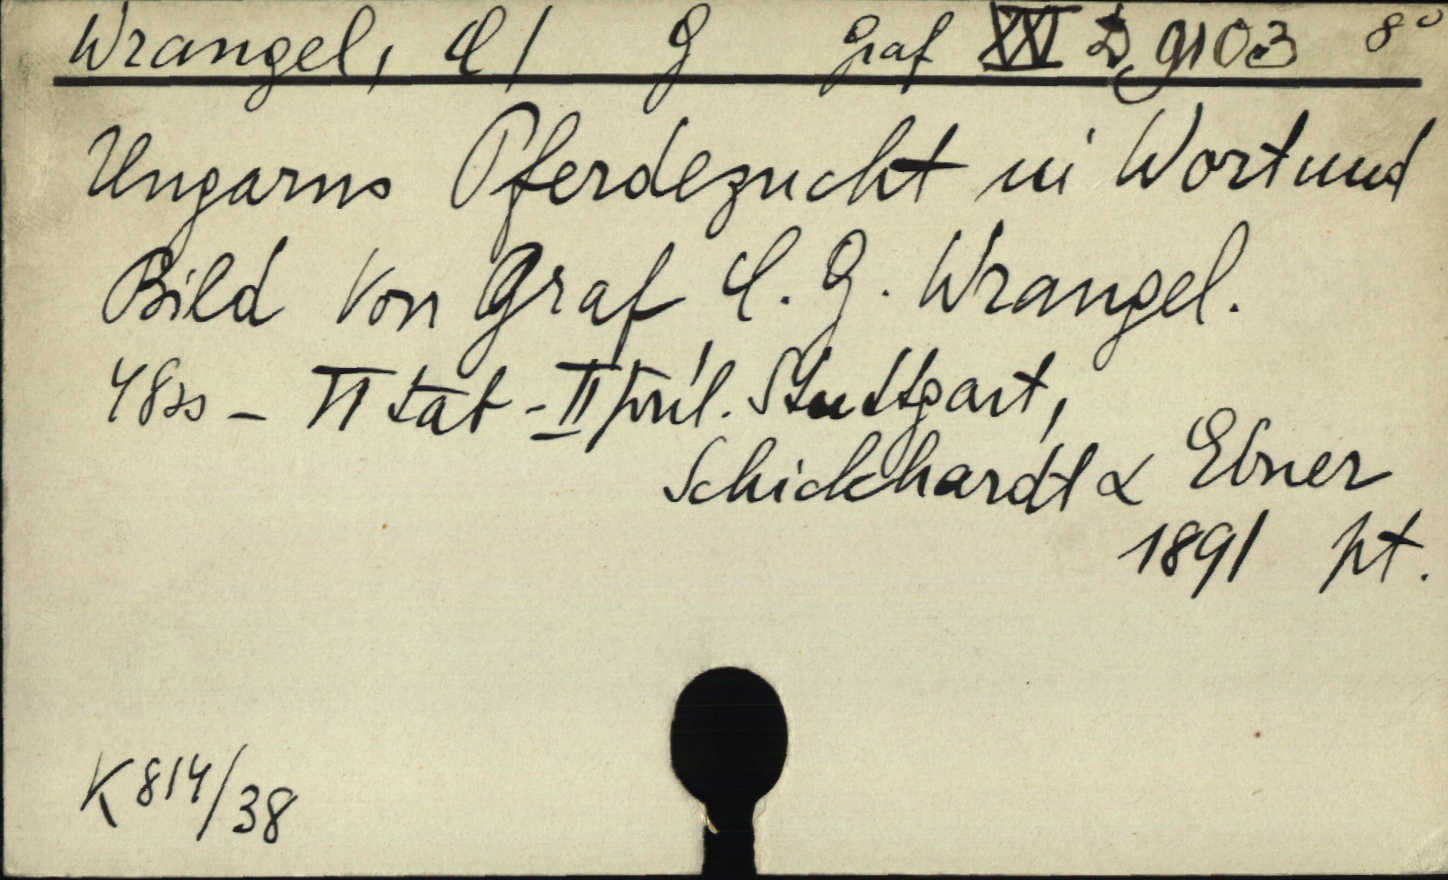 Wrangel, C/ G Graf XXI D 9103 8°
Ungarns Pferdezucht in Wort und
Bild von Graf C. G. Wrangel.
48 - VI tab - II Stuttgart,
Schickhardt & Ebner
1891 pt.
K 814/38